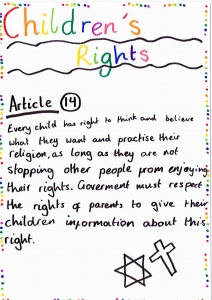 Children's
Rights
Article 14
Every child has right to think and believe
what they want and practise their
religion, as long as they are not
stopping other people from enjoying
their rights. Goverment must respect
the rights of parents to give their
children information about this
right.